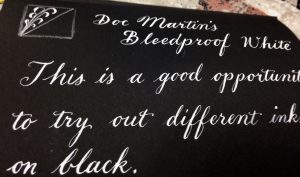 Doc Martin's
Bleedproof White
This is a good opportunit
to try out different ink
on black.